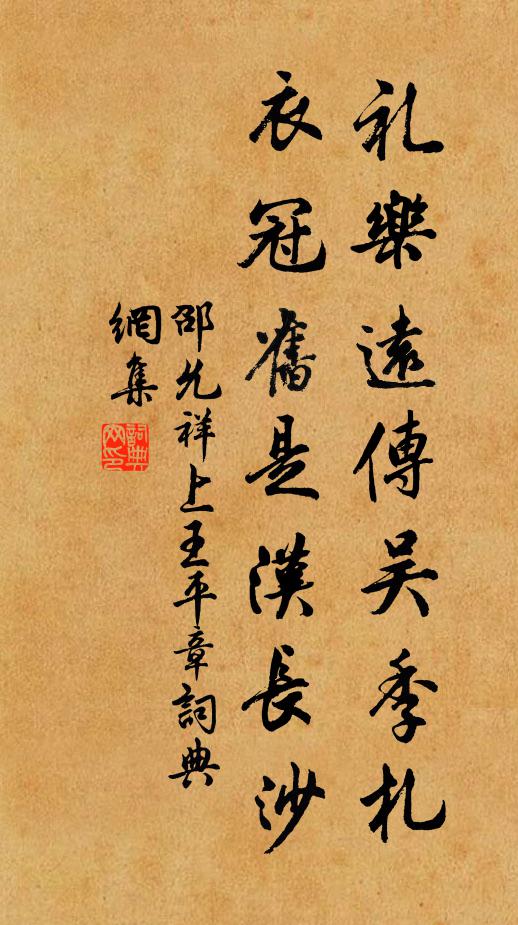 礼樂遠傳吴季札
衣冠舊是漢長沙
邵允祥上王平章詞典
網集
詞典
网印